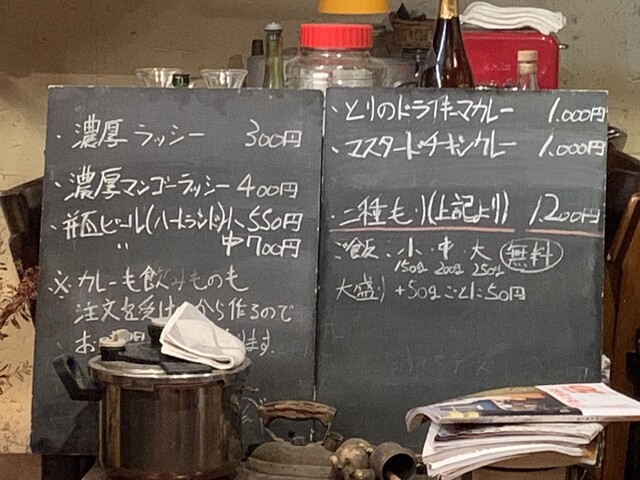 ・濃厚ラッシー 300円
・濃厚マンゴーラッシー 400円
・瓶ビール(ハートランド)小 550円
〃 中 700円
※カレーも飲みものも
注文を受け から作るので
お ます.
・とりのドライキーマカレー 1.000円
・マスタードチキンカレー 1.000円
・二種もり(上記より) 1.200円
ご飯・小・中・大 無料
150g 200g 250g
大盛り +50gごとに50円